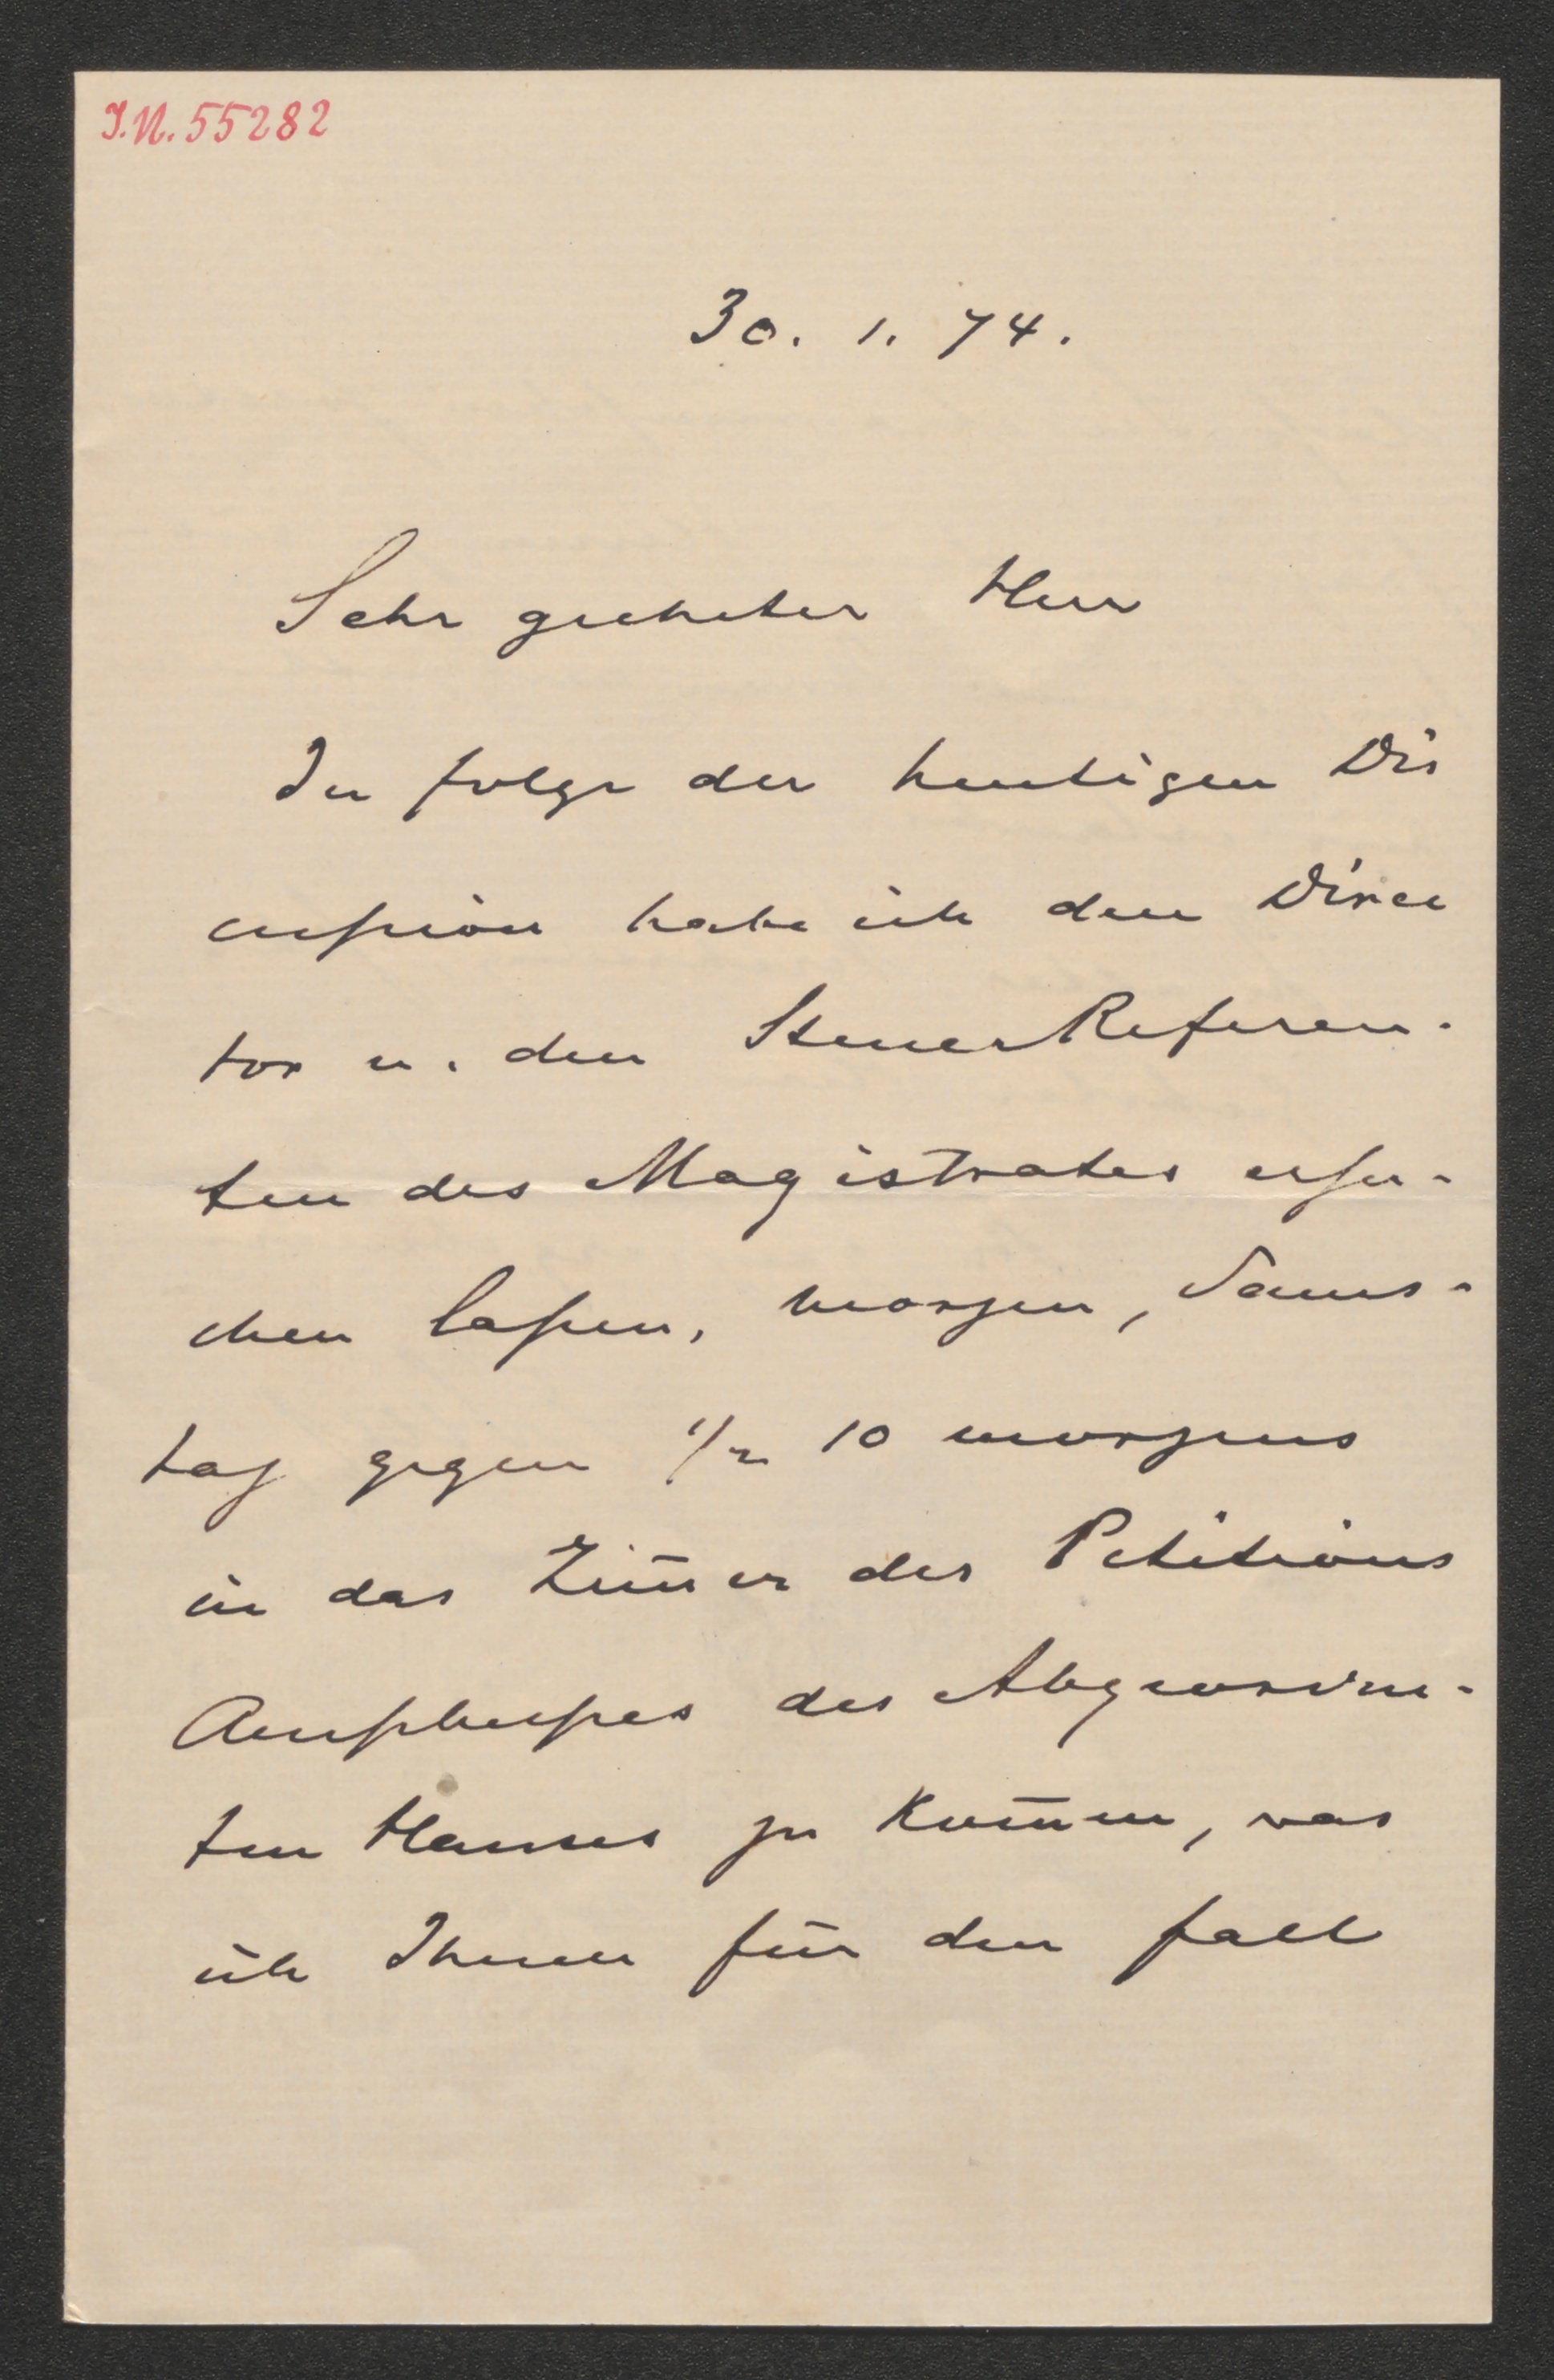 I.N. 55282
30. 1. 74.
Sehr geehrter Herr
In folge der heutigen Dis
cussion habe ich den Direc
tor u. den Steuer Referen-
ten des Magistrates ersu-
chen lassen, morgen, Sams-
tag gegen 1/2 10 morgens
in das Zim̅er des Petitions
Ausschusses des Abgeordne-
ten Hauses zu kom̅en, was
ich Ihnen für den fall